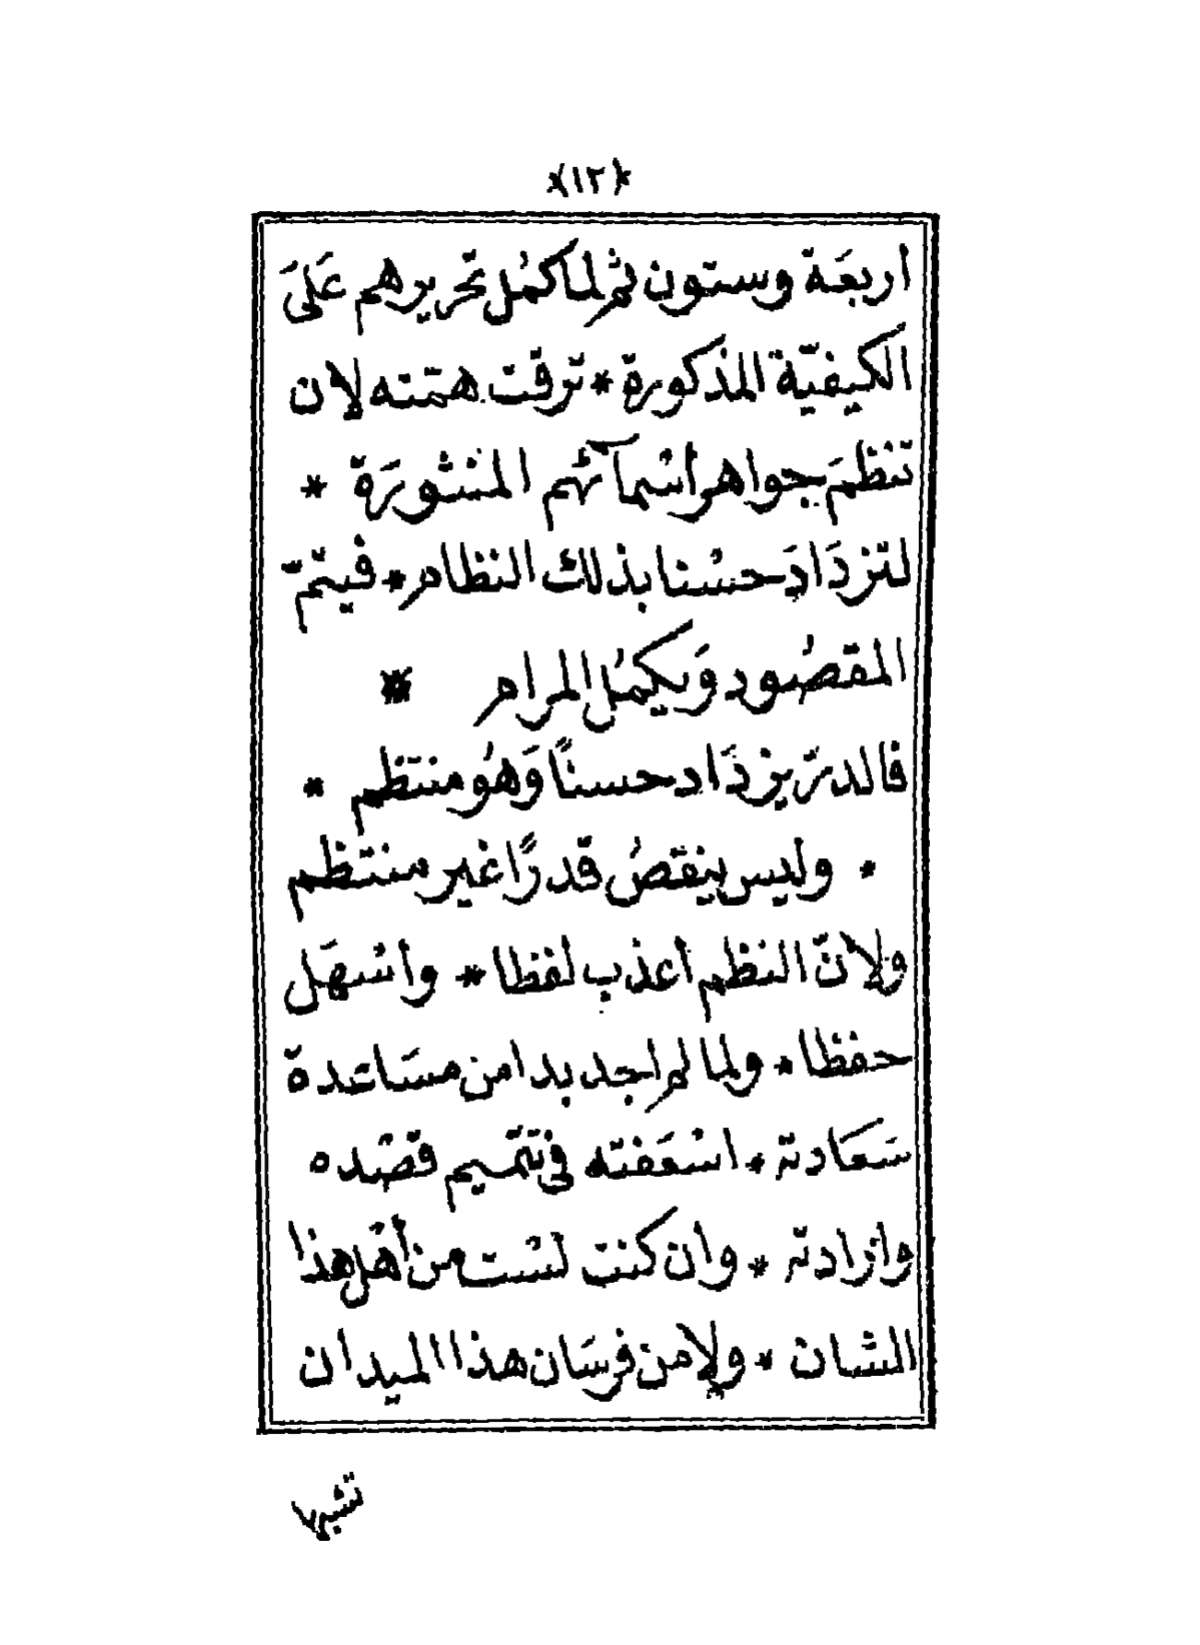 *(١٢)*
اربعَة وستون ثم لما كمُل تحريرهم عَلىَ
الكيفيّة المذكورة * ترقّت همّته لان
تنظمَ جواهر أسْمآئهم المنْثورَة *
لتزدَادَ حسْنا بذلك النظام * فيتمّ
المقصُود وَيكمُل المرام *
فالدرّ يزدَاد حسنًا وَهُو منتظم *
* وليس ينقصُ قدرًا غير منتظم
ولأنّ النظم أعذب لفظا * وأسْهَل
حفظا * ولما لم اجد بدا من مسَاعدة
سَعَادته * اسْعَفته فى تتْميم قصْده
وارادته * وان كنت لسْت من أهْل هذا
الشان * ولا من فرسَان هذا الميدان
تشبها